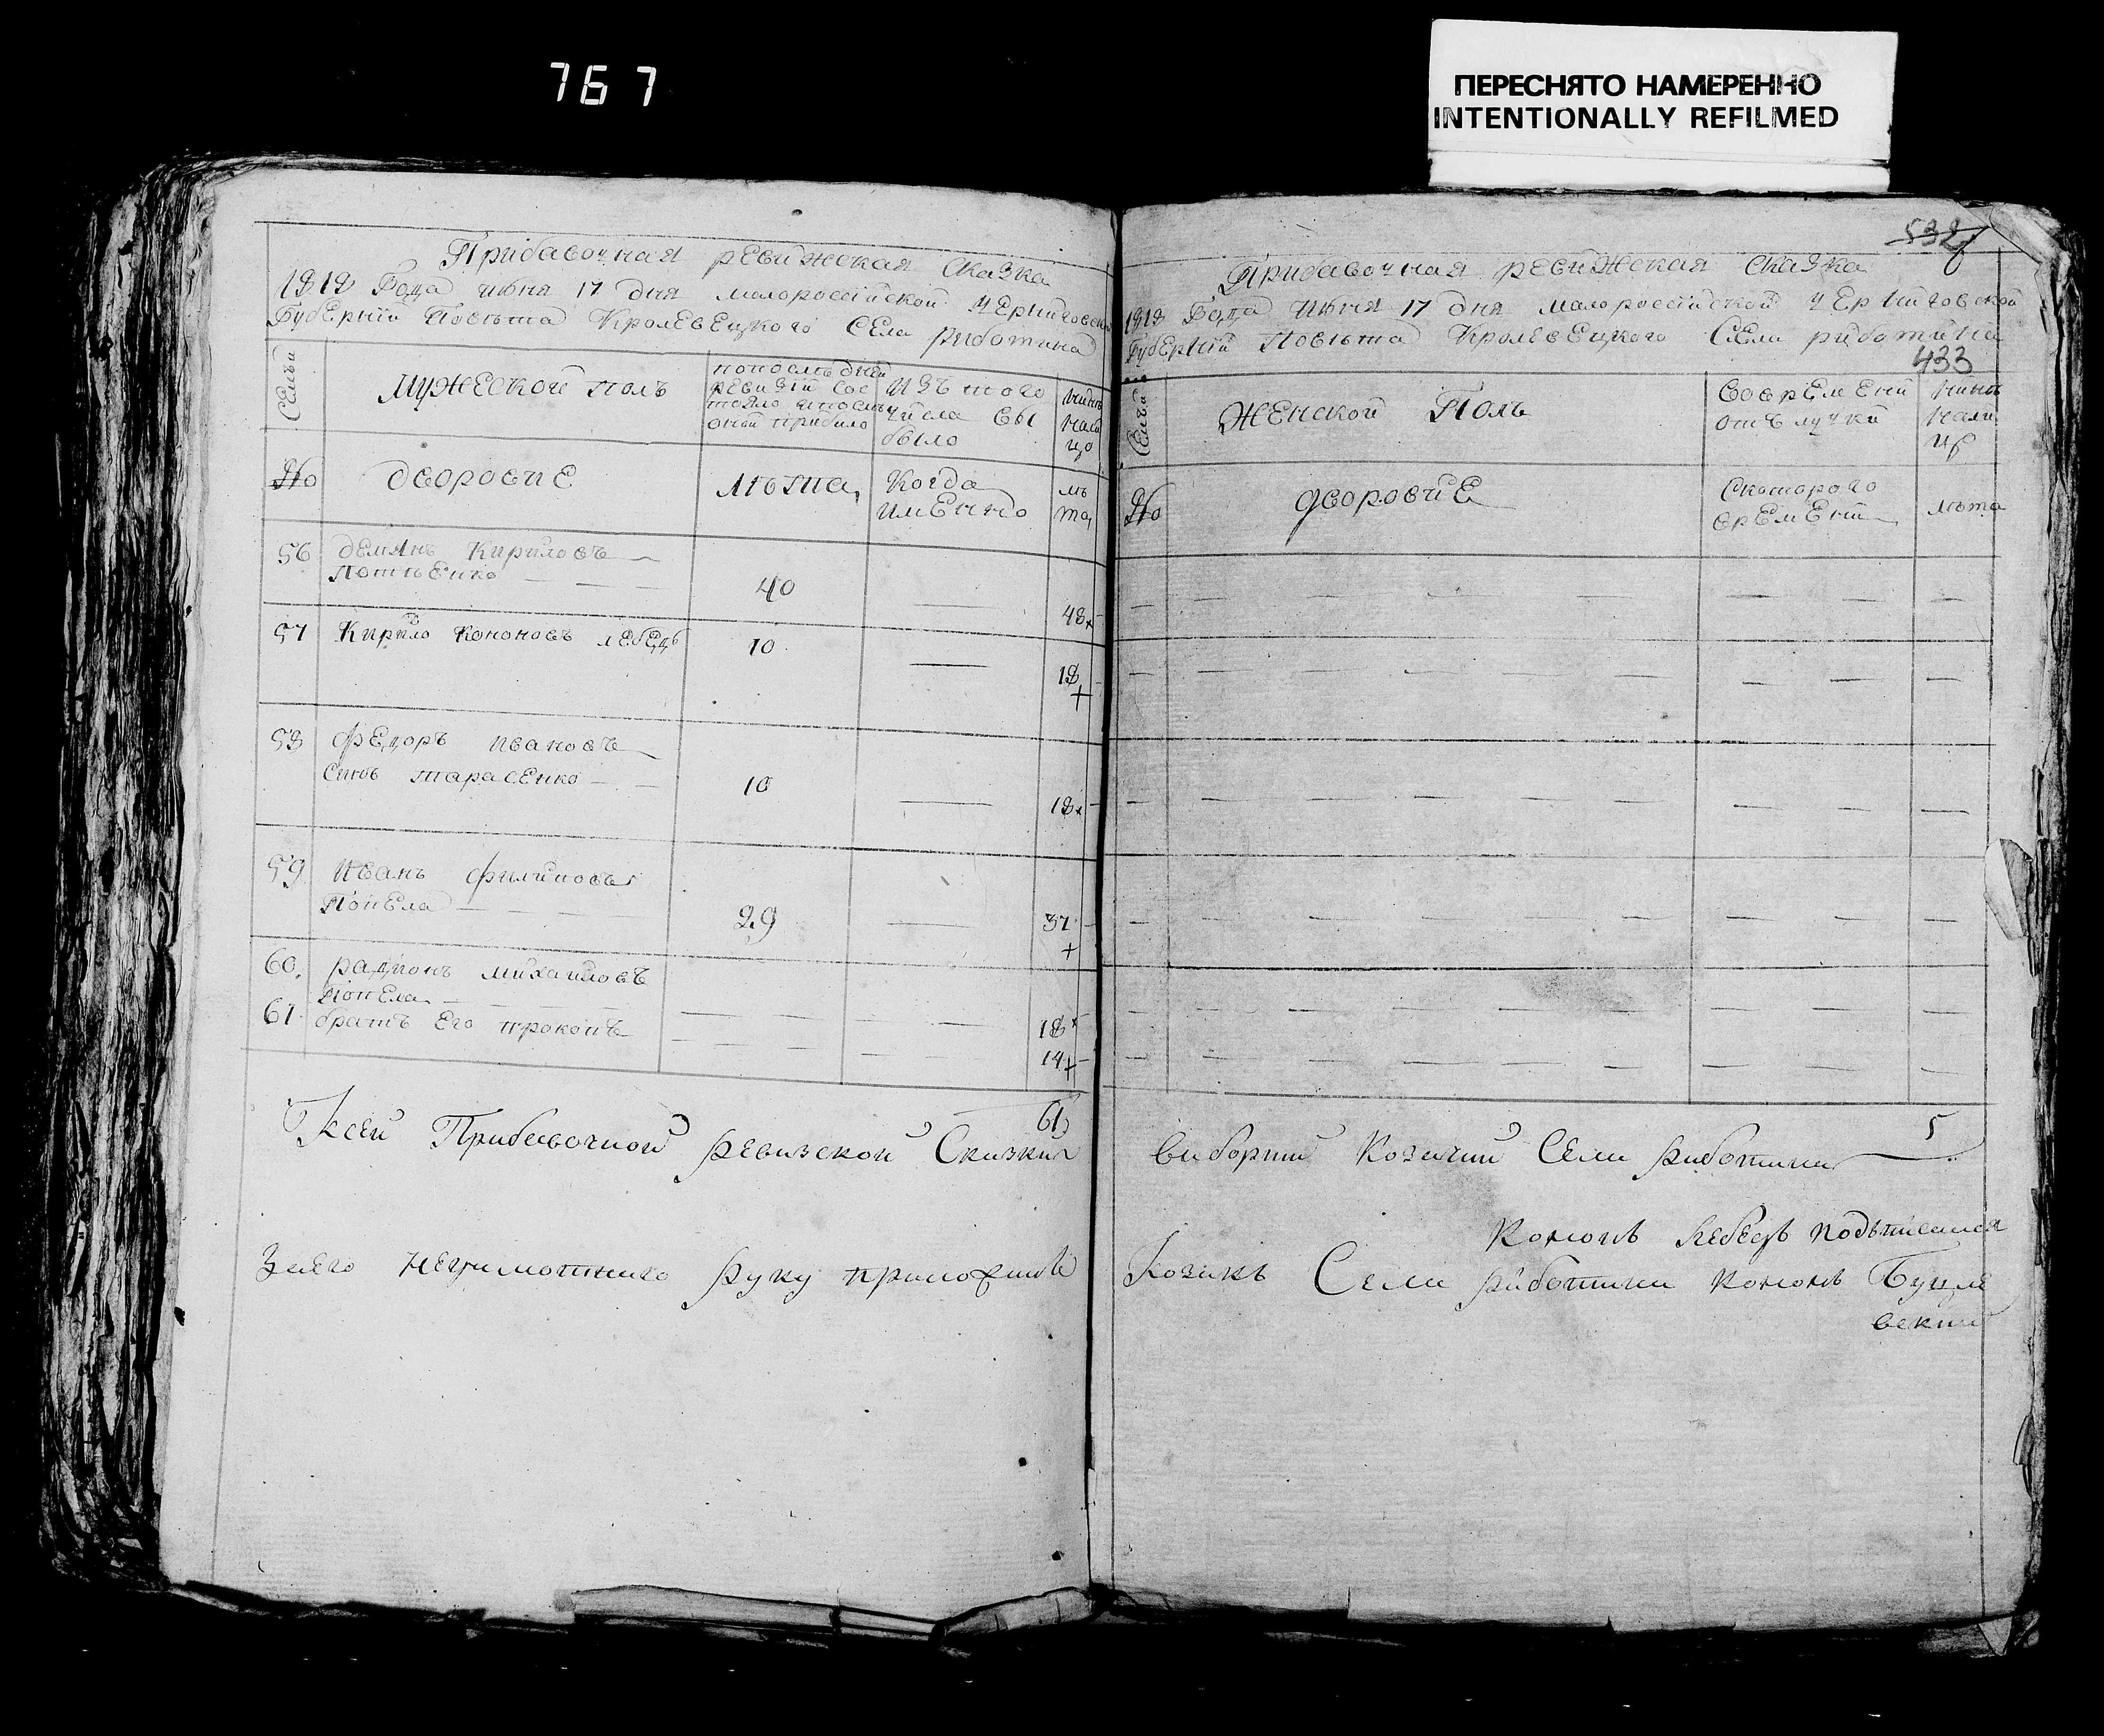 767
ПЕРЕСНЯТО НАМЕРЕННО
INTENTIONALLY REFILMED
Прибавочная ревижская сказка
1818 Года июня 17 дня малороссійской Черниговской
Губерніи Повѣта Кролевецкого Села риботина
Семьи
мужеской полъ
попослѣдней
ревизіи сос
тояло ипослѣ
оной прибило
Изъ того
числа вы
было
нинѣ
нали
цо
№
дворовие
Лѣта
Когда
имЕнно
лѣ
та
56 демянъ Кириловъ
Потпенко 40 48
57 Кирило кононовъ лебедь 10 18
58 федоръ ивановъ
синъ тарасенко 10 18
59 Иванъ филиповъ
Попела 29 37
60 радионъ михаиловъ
Попела 18
61 братъ Его прокопъ 14
61
Ксей Прибавочной ревизской Сказки
Заего неграмотнаго руку приложилъ
532
Прибавочная ревижская сказка
1818 Года Июня 17 дня малороссійской Черниговской
Губерніи Повѣта Кролевецкого Села риботина
433
Семьи
Женской Полъ
Вовремени
отълучки
нинѣ
нали
цо
№
дворовие
Скоторого
времени
лѣта
5
виборний Козачий Села риботина
Кононъ Лебедь подъписался
Козакъ Села риботина кононъ Буцле
вский